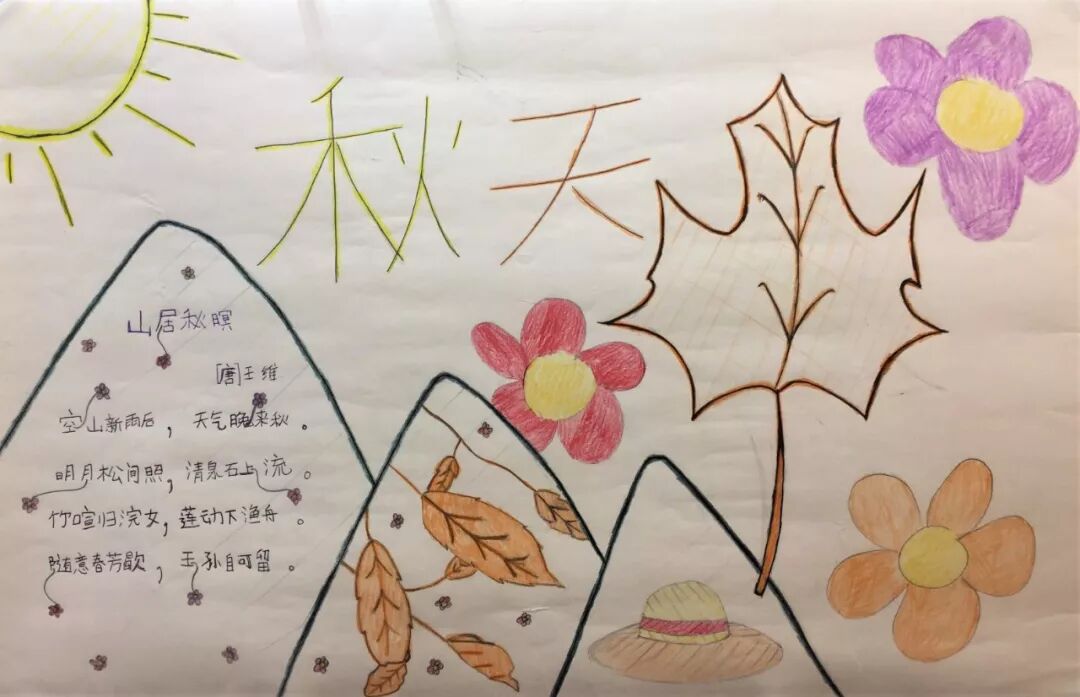 秋天
山居秋暝
[唐]王维
空山新雨后，天气晚来秋。
明月松间照，清泉石上流。
竹喧归浣女，莲动下渔舟。
随意春芳歇，王孙自可留。